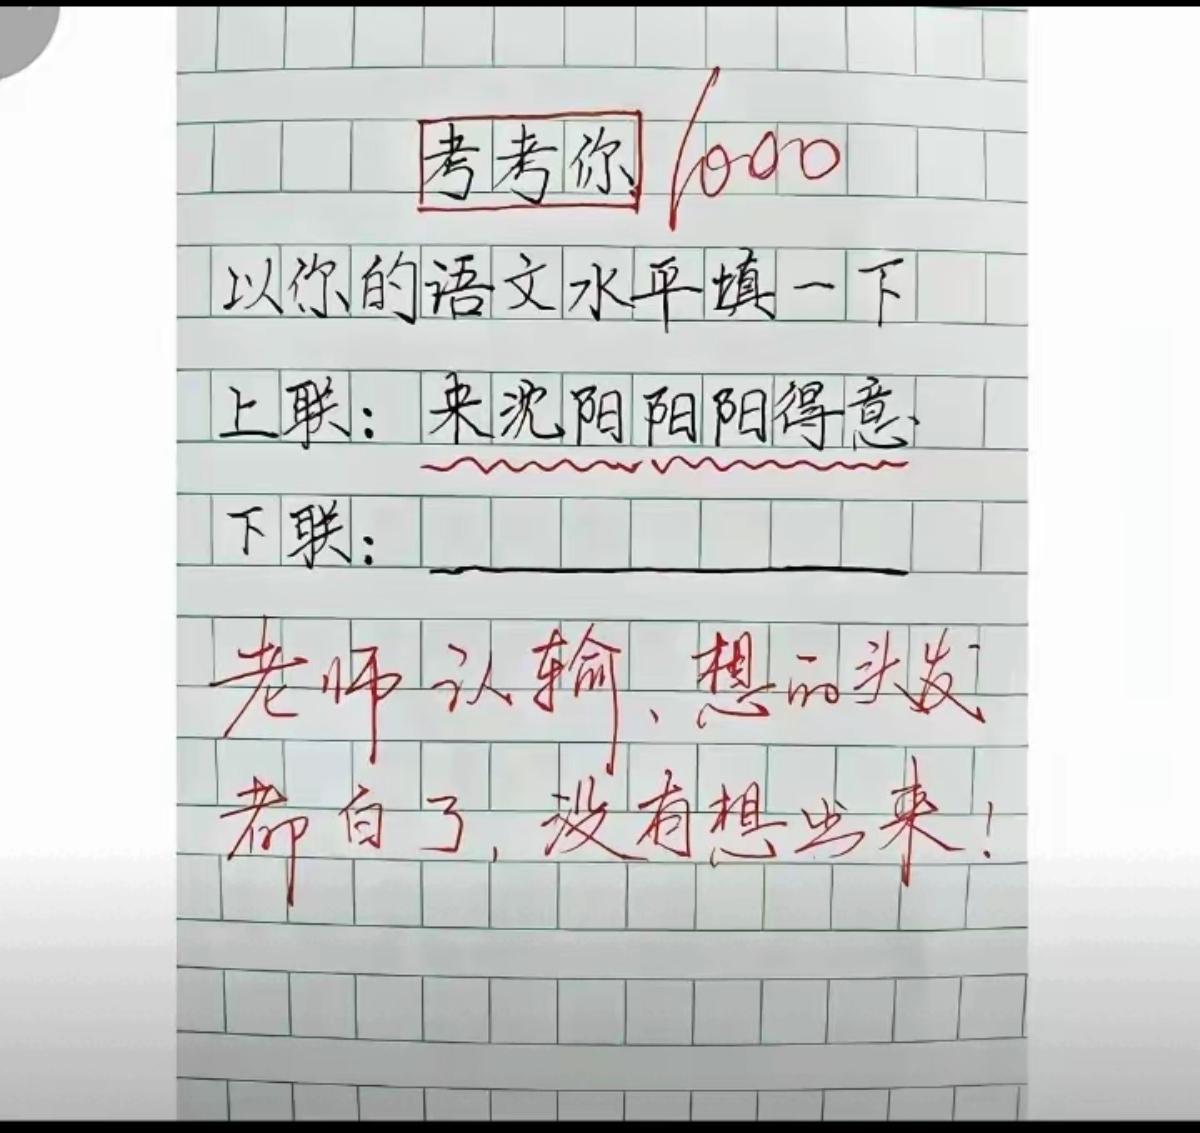 考考你 1000
以你的语文水平填一下
上联：来沈阳阳阳得意
下联：
老师认输、想的头发
都白了，没有想出来！